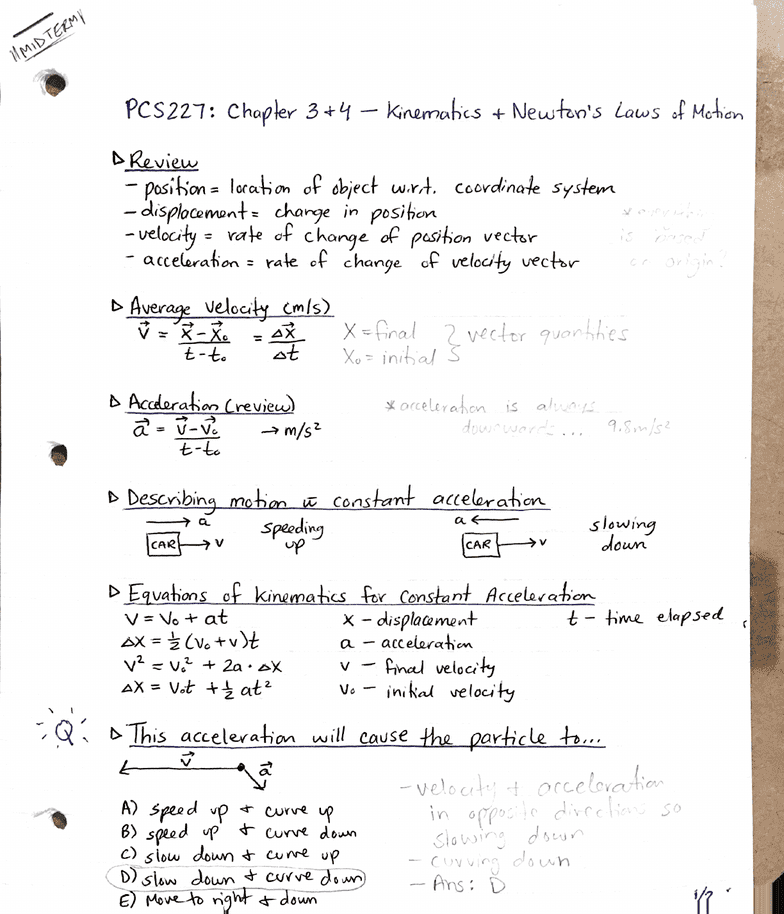 MIDTERM
PCS227: Chapter 3+4 — Kinematics + Newton's Laws of Motion
▷ Review
- position = location of object w.r.t. coordinate system
- displacement = change in position
- velocity = rate of change of position vector
is based
- acceleration = rate of change of velocity vector
or origin!
▷ Average Velocity (m/s)
v⃗ = (x⃗ - x⃗₀)/(t - t₀) = Δx⃗/Δt
X = final } vector quantities
X₀ = initial
▷ Acceleration (review)
* acceleration is always
downwards... 9.8m/s²
a⃗ = (v⃗ - v⃗₀)/(t - t₀) → m/s²
▷ Describing motion w̄ constant acceleration
→ a speeding up
CAR → v
a ← slowing down
CAR → v
▷ Equations of Kinematics for Constant Acceleration
V = V₀ + at x - displacement t - time elapsed
ΔX = ½ (V₀ + V)t a - acceleration
V² = V₀² + 2a · ΔX v - final velocity
ΔX = V₀t + ½ at² v₀ - initial velocity
Q ▷ This acceleration will cause the particle to...
v⃗ a⃗
A) speed up + curve up
B) speed up + curve down
C) slow down + curve up
D) slow down + curve down
E) Move to right + down
- velocity + acceleration
in opposite directions so
slowing down
- curving down
- Ans: D
1/7